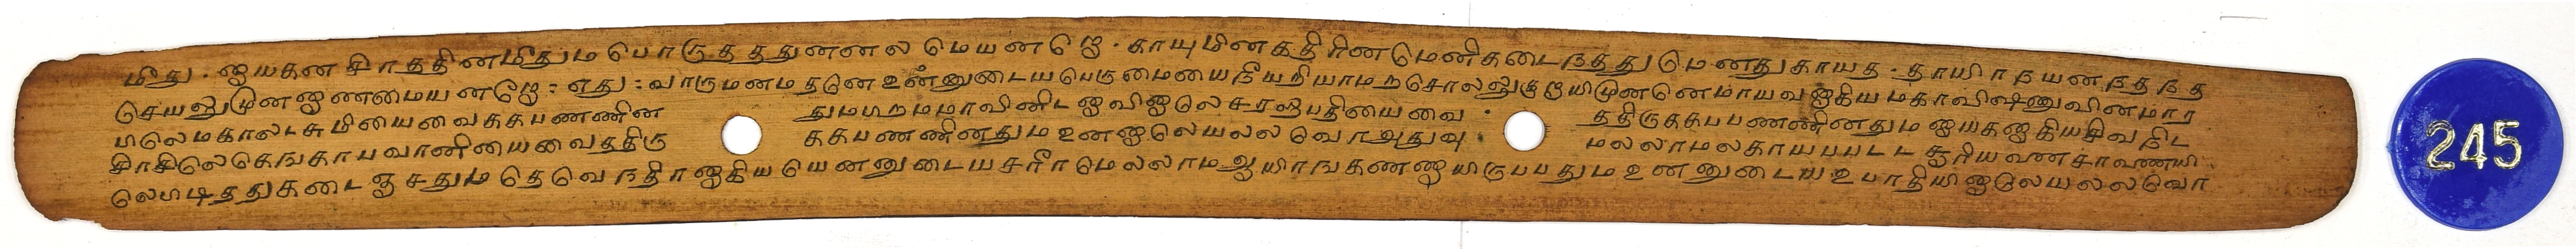 மீது . ஐயகன சிரத்தினமீதும பொருதத்துனனல மெயனறே . காயுமினகதிரின மெனிகடைநத்து மெனதுகாயத . தாயிரநயனநதநத
செயலுமுன ஐணமையனறே : எது : வாருமனமதனே உன்னுடையபெருமையைநீயறியாமறசொலலுகுறயிமுனனெமாயவஐகியமகாவிஷ்ணுவினமார
பிலெமகாலட்சுமியைவைககபணணின துமபிறமமாவினிட ஐவிஐலெசரஐபதியைவை ததிருககபபணணினதும ஐயகஐகியசிவநிட
சிரசிலெகெஙகாபவானியைவைத்திரு ககபணணினதும உனஐலெயலலவோஅதுவு மலலாமலகாயபபடட சூரியவணசரவணையி
லெபிடித்துகடைஞசதும தெவெநதிரஐகிய யெனனுடையசரீரமெலலாமஆயிரஙகணணயிருபபதும உனனுடைய உபாதியிஐலெயலலவோ
245